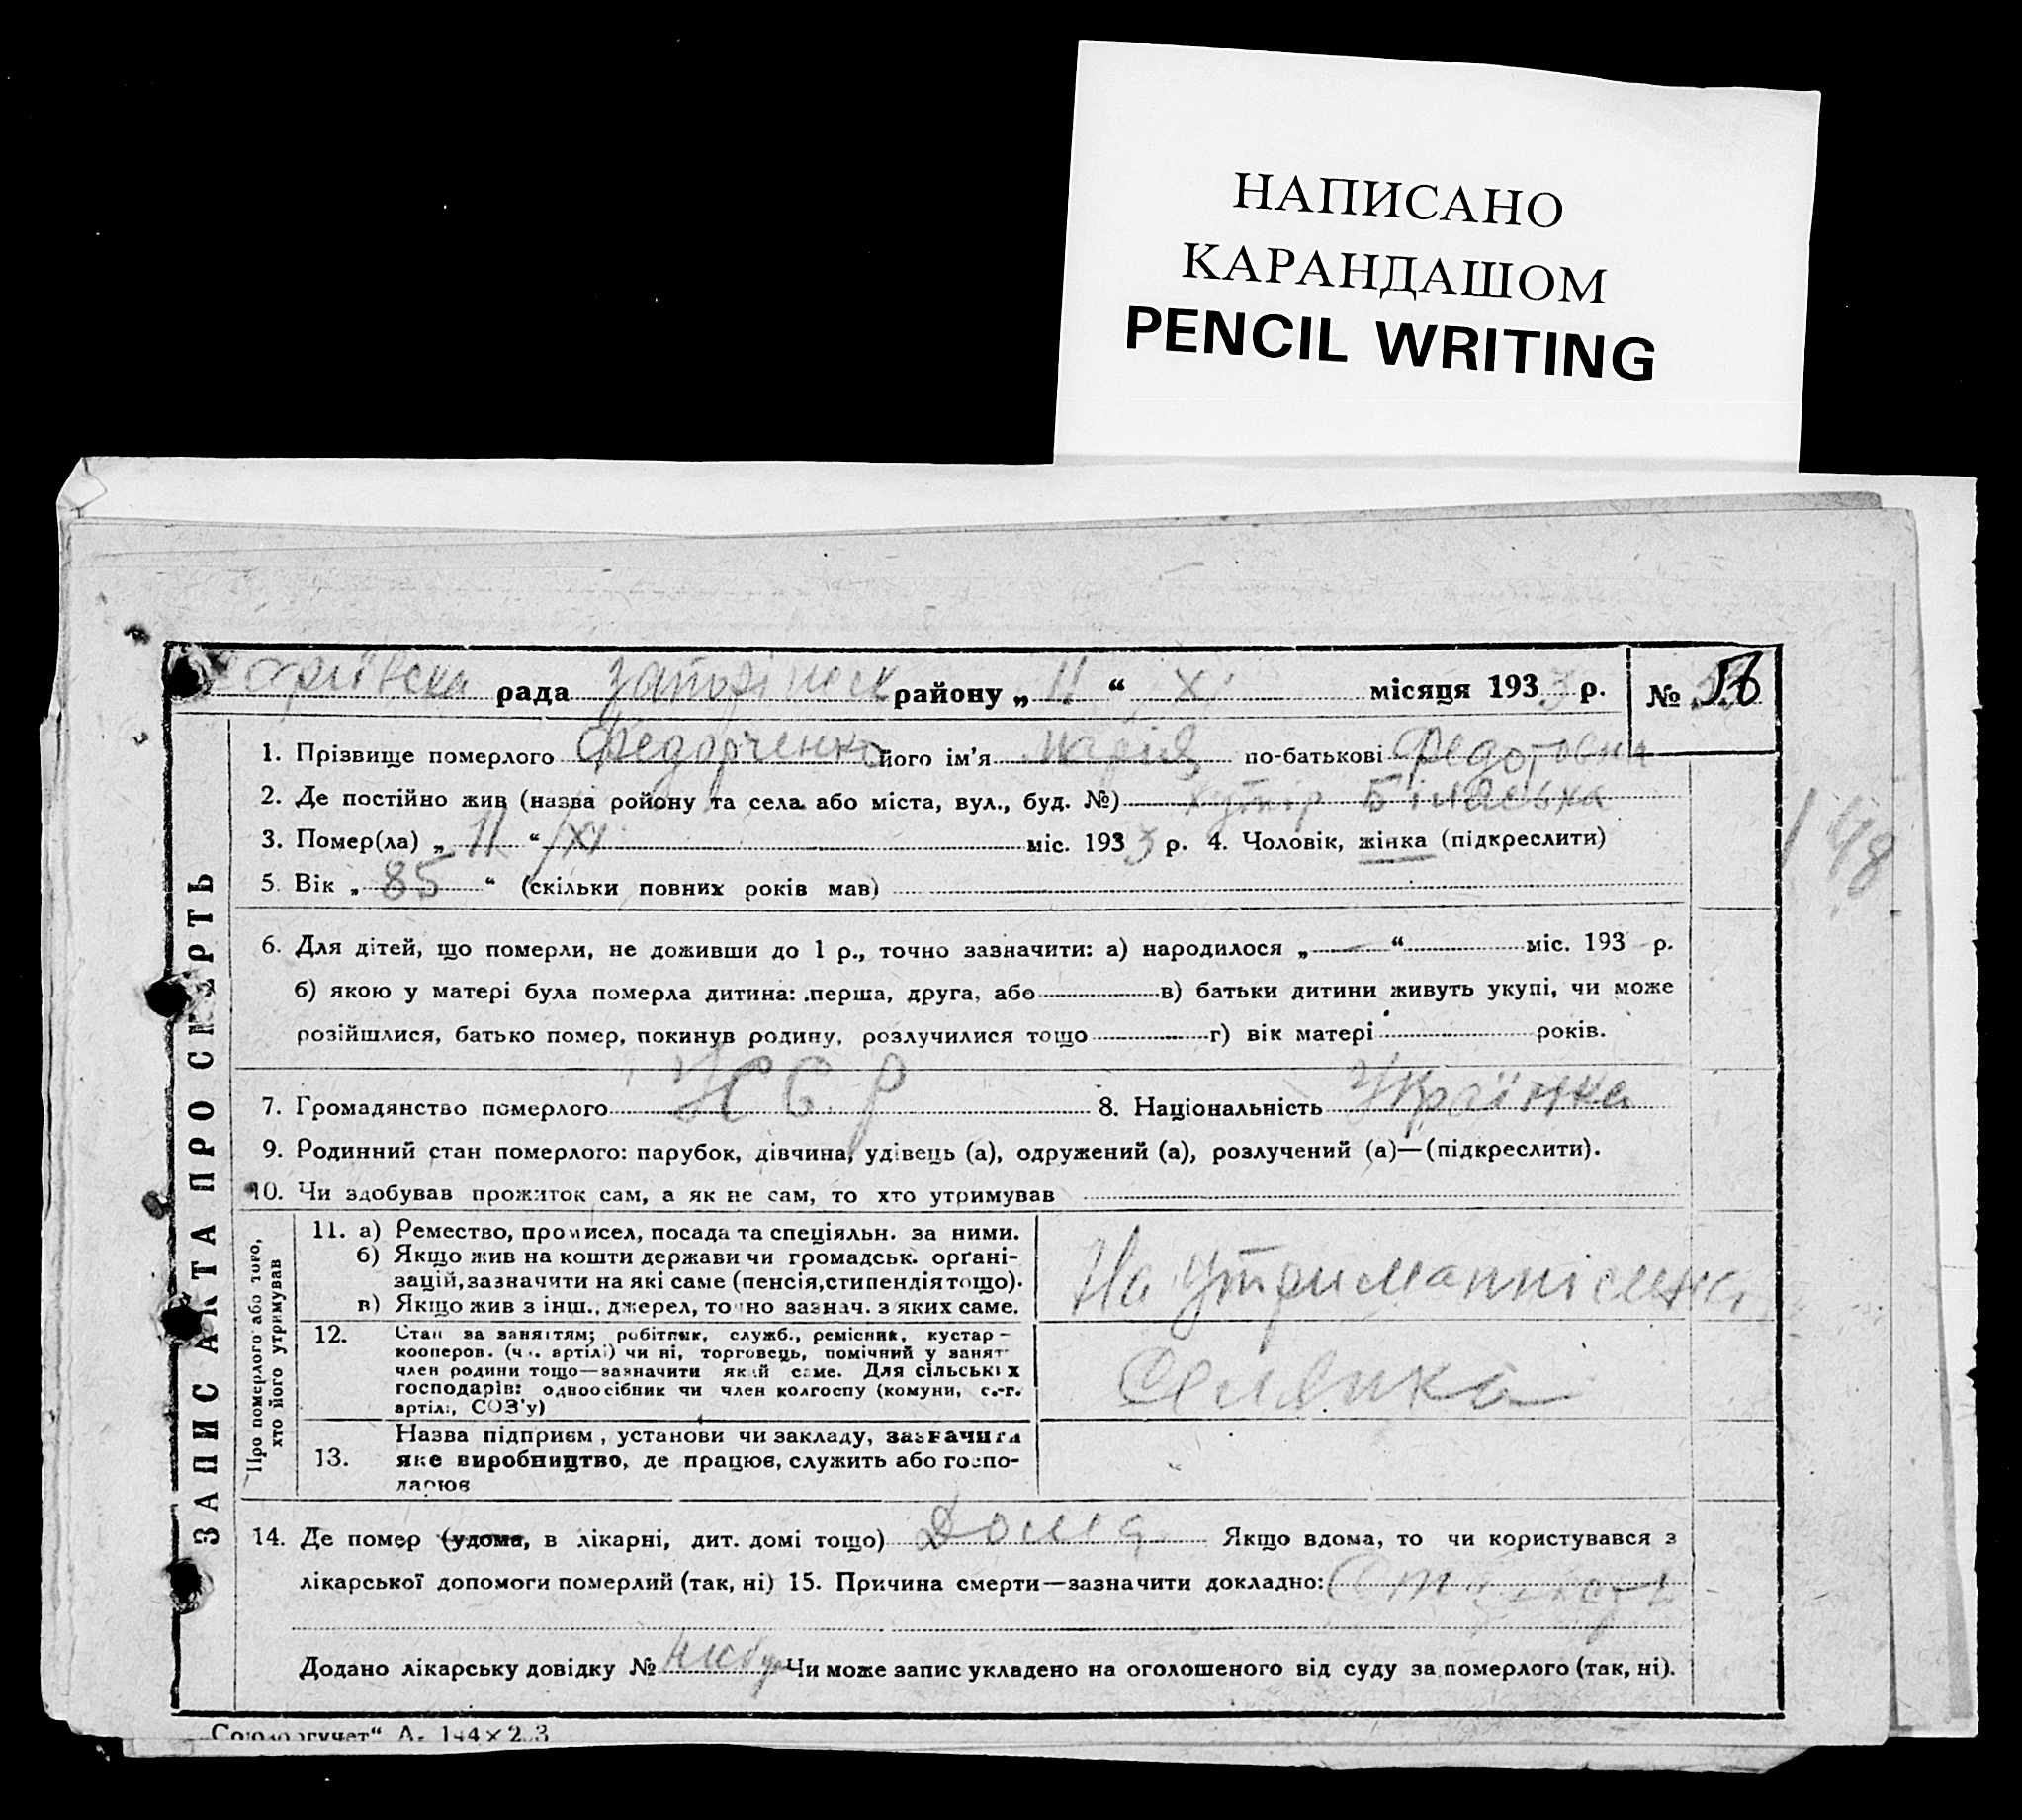 НАПИСАНО
КАРАНДАШОМ
PENCIL WRITING
рада району „ 11 “ XI місяця 1933 р. № 56
1. Прізвище померлого Федорченко його ім'я Марія по-батькові
2. Де постійно жив (назва ройону та села або міста, вул., буд. №) хутір
3. Помер(ла) „ 11 “ XI міс. 1933 р. 4. Чоловік, жінка (підкреслити)
5. Вік „ 85 “ (скільки повних років мав)
6. Для дітей, що померли, не доживши до 1 р., точно зазначити: а) народилося „ — “ міс. 193 р.
б) якою у матері була померла дитина: перша, друга, або в) батьки дитини живуть укупі, чи може
розійшлися, батько помер, покинув родину, розлучилися тощо г) вік матері років.
7. Громадянство померлого УССР 8. Національність Українка
9. Родинний стан померлого: парубок, дівчина, удівець (а), одружений (а), розлучений (а)—(підкреслити).
10. Чи здобував прожиток сам, а як не сам, то хто утримував
ЗАПИС АКТА ПРО СМЕРТЬ
Про померлого або того,
хто його утримував
11. а) Ремество, промисел, посада та спеціяльн. за ними.
б) Якщо жив на кошти держави чи громадськ. органі-
зацій, зазначити на які саме (пенсія, стипендія тощо).
в) Якщо жив з інш., джерел, точно зазнач. з яких саме.
На утриманні сина
12. Стан за заняттям; робітник, служб., ремісник, кустар-
кооперов. (ч. артілі) чи ні, торговець, помічний у занят
член родини тощо—зазначити який саме. Для сільських
господарів: одноосібник чи член колгоспу (комуни, с.-г.
артілі, СОЗ'у)
Селянка
13. Назва підприєм, установи чи закладу, зазначити
яке виробництво, де працює, служить або госпо-
дарює
14. Де помер (удома, в лікарні, дит. домі тощо) Дома Якщо вдома, то чи користувався з
лікарської допомоги померлий (так, ні) 15. Причина смерти—зазначити докладно:
Додано лікарську довідку № Чи може запис укладено на оголошеного від суду за померлого (так, ні).
148